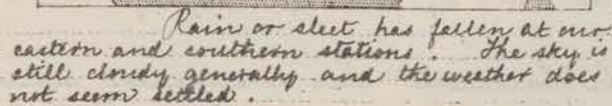 Rain or sleet has fallen at our
eastern and southern stations. The sky is
still cloudy generally and the weather does
not seem settled.